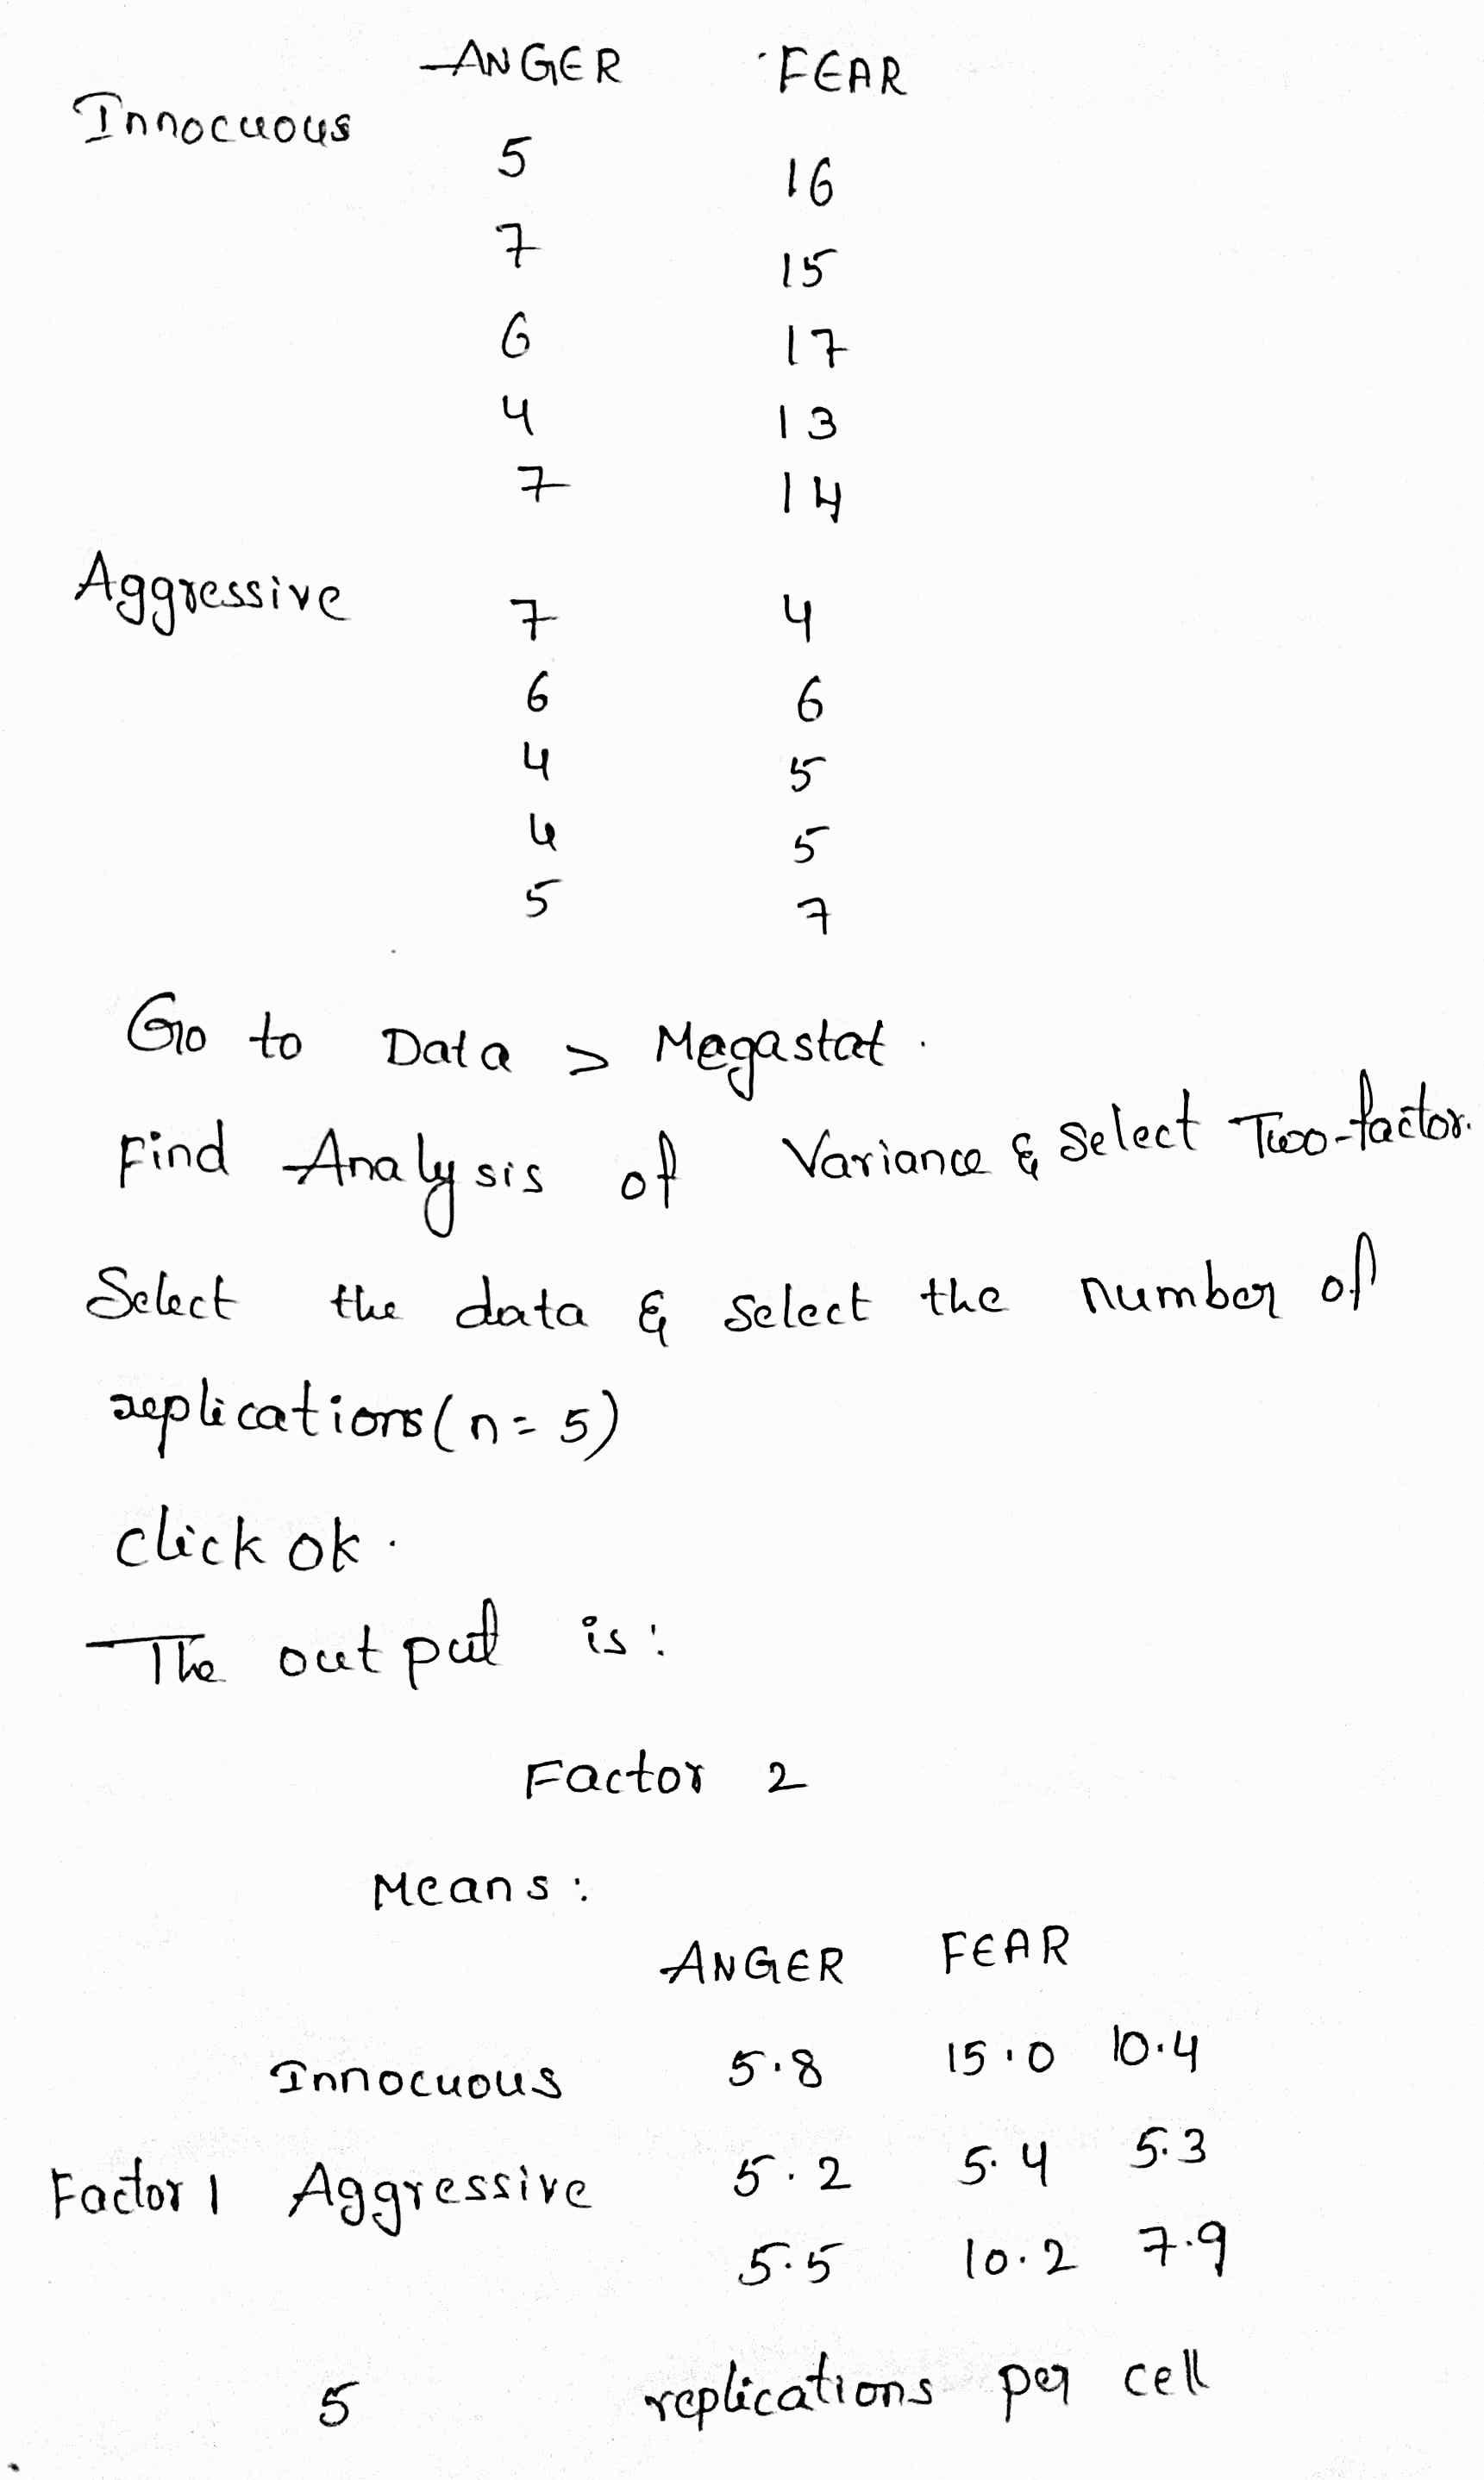 ANGER FEAR
Innocuous
5 16
7 15
6 17
4 13
7 14
Aggressive 7 4
6 6
4 5
4 5
5 7
Go to Data > Megastat.
Find Analysis of Variance & Select Two-factor.
Select the data & select the number of
replications (n = 5)
click ok.
The output is:
Factor 2
Means:
ANGER FEAR
Innocuous 5.8 15.0 10.4
Factor 1 Aggressive 5.2 5.4 5.3
5.5 10.2 7.9
5 replications per cell